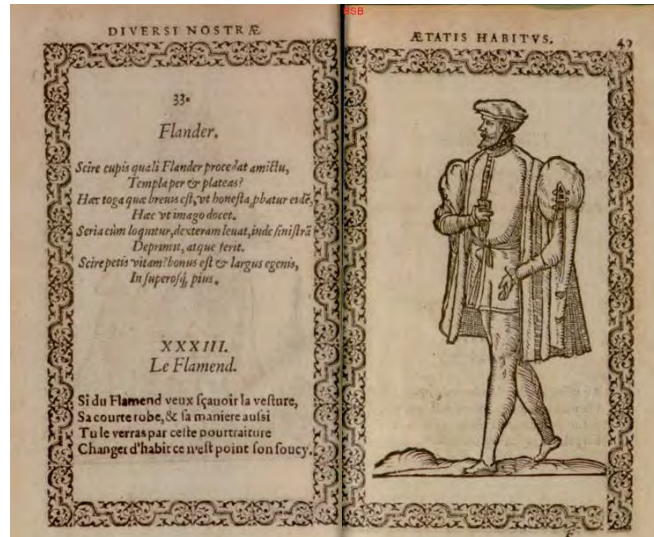 DIVERSI NOSTRÆ
33.
Flander.
Scire cupis quali Flander procedat amictu,
Templa per & plateas?
Hæc toga quæ breuis est, vt honesta, pbatur eidē,
Hæc vt imago docet.
Seria cùm loquitur, dexteram leuat, inde sinistrā
Deprimit, atque ferit.
Scire petis vitam? bonus est & largus egenis,
In superosq́, pius.
XXXIII.
Le Flamend.
Si du Flamend veux sçauoir la vesture,
Sa courte robe, & sa maniere aussi
Tu le verras par ceste pourtraiture
Changer d'habit ce n'est point son soucy.
BSB
ÆTATIS HABITVS.